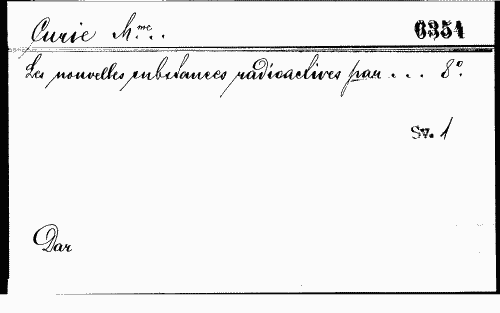 Curie Mme.. 6351
Les nouvelles substances radioactives par... 8°.
Sv. 1
Dar